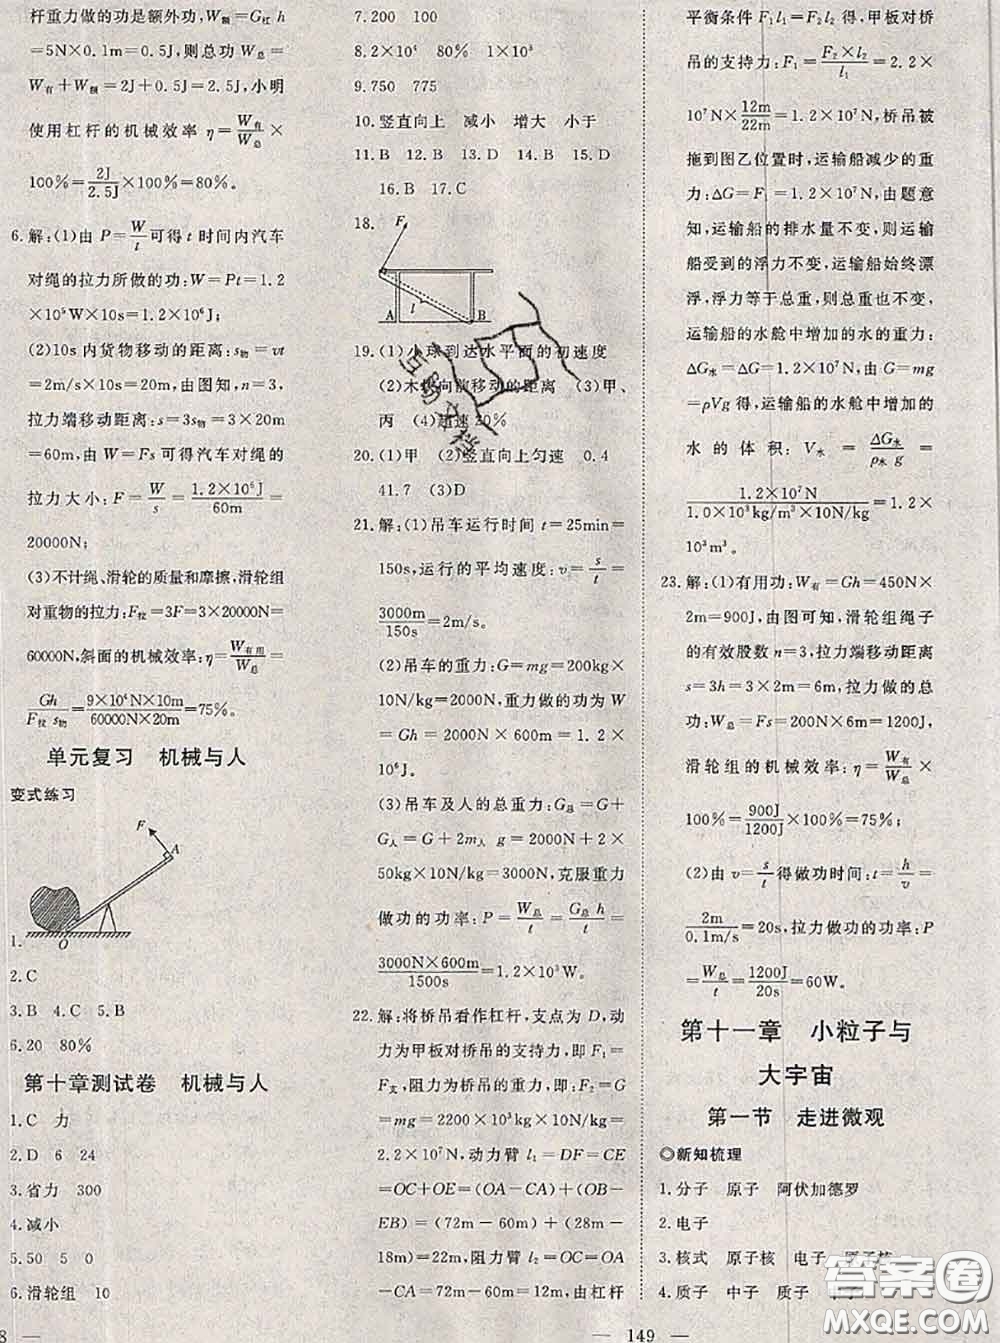 杆重力做的功是额外功,W额=G杠 h
=5N×0.1m=0.5J,则总功 W总=
W有+W额=2J+0.5J=2.5J,小明
使用杠杆的机械效率 η=W有/W总×
100%=2J/2.5J×100%=80%。
6.解:(1)由 P=W/t可得 t 时间内汽车
对绳的拉力所做的功:W=Pt=1.2
×10⁵W×10s=1.2×10⁶J;
(2)10s 内货物移动的距离:s物=vt
=2m/s×10s=20m,由图知,n=3,
拉力端移动距离:s=3s物=3×20m
=60m,由 W=Fs 可得汽车对绳的
拉力大小:F=W/s=1.2×10⁶J/60m=
20000N;
(3)不计绳、滑轮的质量和摩擦,滑轮组
对重物的拉力:F拉=3F=3×20000N=
60000N,斜面的机械效率:η=W有用/W总=
Gh/F拉 s物=9×10⁴N×10m/60000N×20m=75%。
单元复习 机械与人
变式练习
F
A
O
1.
2.C
3.B 4.C 5.B
6.20 80%
第十章测试卷 机械与人
1.C 力
2.D 6 24
3.省力 300
4.减小
5.50 5 0
6.滑轮组 10
7.200 100
8.2×10⁴ 80% 1×10³
9.750 775
10.竖直向上 减小 增大 小于
11.B 12.B 13.D 14.B 15.D
16.B 17.C
18.
F
l
A B
19.(1)小球到达水平面的初速度
(2)木块向前移动的距离 (3)甲、
丙 (4)超速20%
20.(1)甲 (2)竖直向上匀速 0.4
41.7 (3)D
21.解:(1)吊车运行时间 t=25min=
150s,运行的平均速度:v=s/t=
3000m/150s=2m/s。
(2)吊车的重力:G=mg=200kg×
10N/kg=2000N,重力做的功为 W
=Gh=2000N×500m=
10⁶J。
(3)吊车及人的总重力:G总=G+
G人=G+2m人 g=2000N+2×
50kg×10N/kg=3000N,克服重力
做功的功率:P=W总/t=G总 h/t=
3000N×600m/1500s=1.2×10³W。
22.解:将桥吊看作杠杆,支点为 D,动
力为甲板对桥吊的支持力,即 F₁=
F支,阻力为桥吊的重力,即:F₂=G
=mg=2200×10³kg×10N/kg=
2.2×10⁷N,动力臂 l₁=DF=CE
=OC+OE=(OA-CA)+(OB-
EB)=(72m-60m)+(28m-
18m)=22m,阻力臂 l₂=OC=OA
-CA=72m-60m=12m,由杠杆
平衡条件 F₁l₁=F₂l₂ 得,甲板对桥
吊的支持力:F₁=F₂×l₂/l₁=2.2×
10⁷N×12m/22m=1.2×10⁷N,桥吊被
拖到图乙位置时,运输船减少的重
力:ΔG=F₁=1.2×10⁷N,由题意
知,运输船的排水量不变,则运输
船受到的浮力不变,运输船始终漂
浮,浮力等于总重,则总重也不变,
运输船的水舱中增加的水的重力:
ΔG水=ΔG=1.2×10⁷N,由 G=mg
=ρVg 得,运输船的水舱中增加的
水的体积:V水=ΔG水/ρ水 g=
1.2×10⁷N/1.0×10³kg/m³×10N/kg=1.2×
10³m³。
23.解:(1)有用功:W有=Gh=450N×
2m=900J,由图可知,滑轮组绳子
的有效股数 n=3,拉力端移动距离
s=3h=3×2m=6m,拉力做的总
功:W总=Fs=200N×6m=1200J,
滑轮组的机械效率:η=W有/W总×
100%=900J/1200J×100%=75%;
(2)由 v=s/t得做功时间:t=h/v=
2m/0.1m/s=20s,拉力做功的功率:P
=W总/t=1200J/20s=60W。
第十一章 小粒子与
大宇宙
第一节 走进微观
◎新知梳理
1.分子 原子 阿伏加德罗
2.电子
3.核式 原子核 电子 原子核
4.质子 中子 质子 中子
8 —
— 149 —
答案圈
MXQE.COM